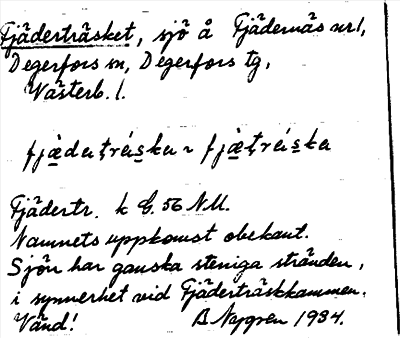 Fjäderträsket, sjö å Fjädernäs nr 1,
Degerfors sn, Degerfors tg,
Västerb. l.
Fjädertr. k G. 56 NU.
Namnets uppkomst obekant.
Sjön har ganska steniga stränder,
i synnerhet vid Fjäderträskkammen.
Vänd! B Nygren 1934.